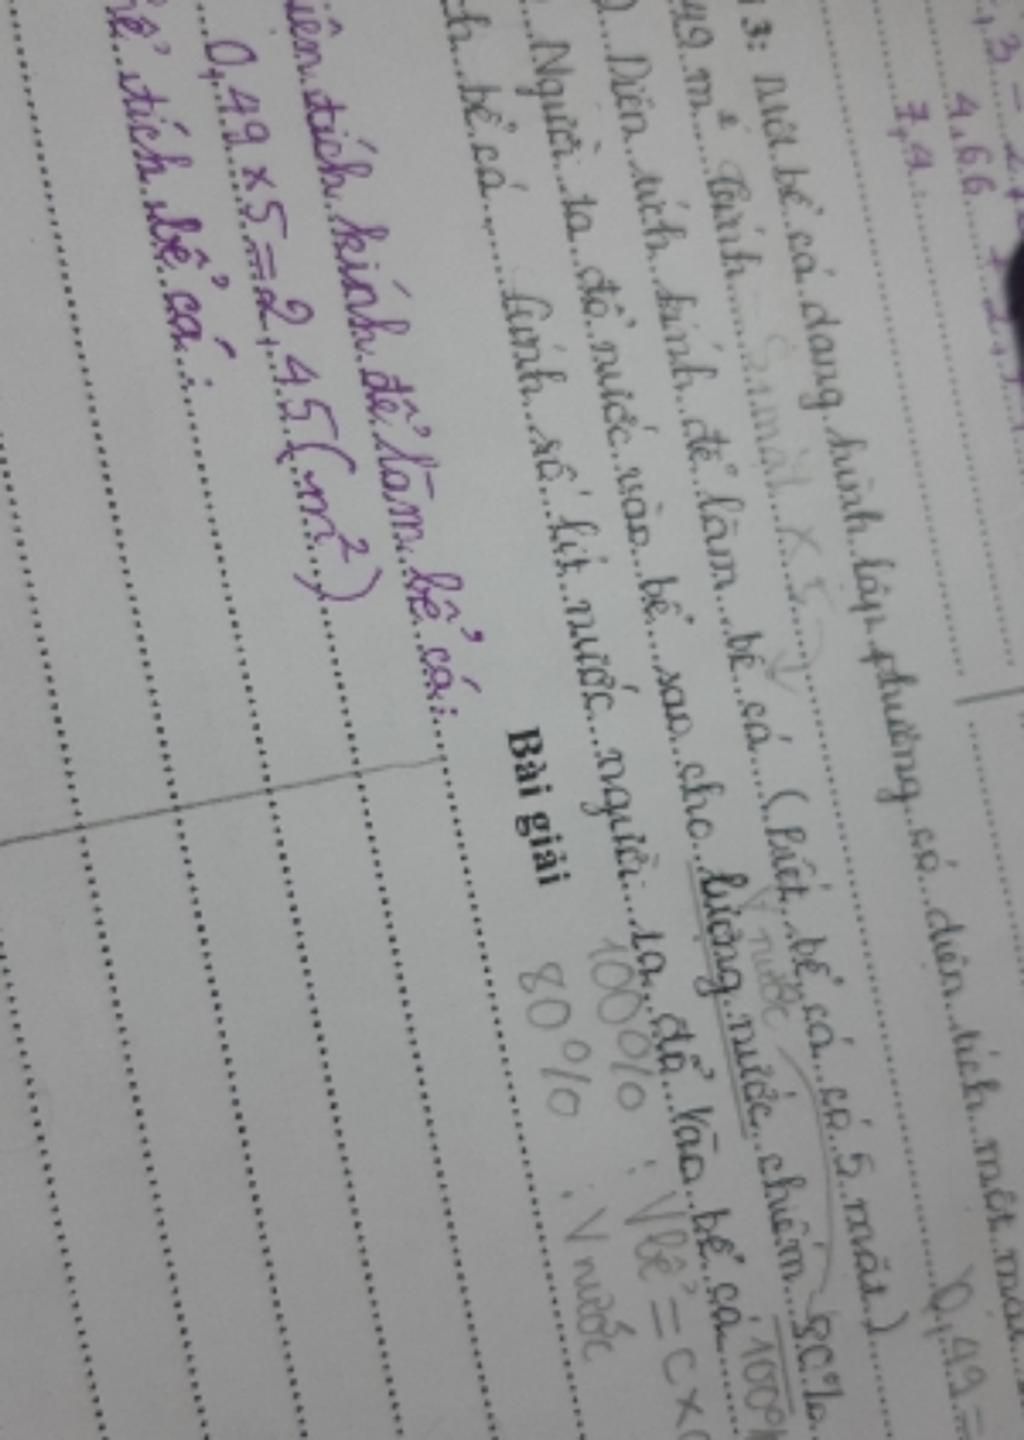 4,66
7,4
3: Một bể cá dạng hình lập phương có diện tích một mặt 0,49
49 m² Tính 5 mặt x 5
Diện tích kính để làm bể cá (biết bể cá có 5 mặt)
Người ta đổ nước vào bể sao cho lượng nước chiếm 80%
V nước 100%
bể cá. Tính số lít nước người ta đổ vào bể cá.
100% : V bể = c x c
Bài giải 80% : V nước
diện tích kính để làm bể cá:
0,49 x 5 = 2,45 (m²)
thể tích bể cá: